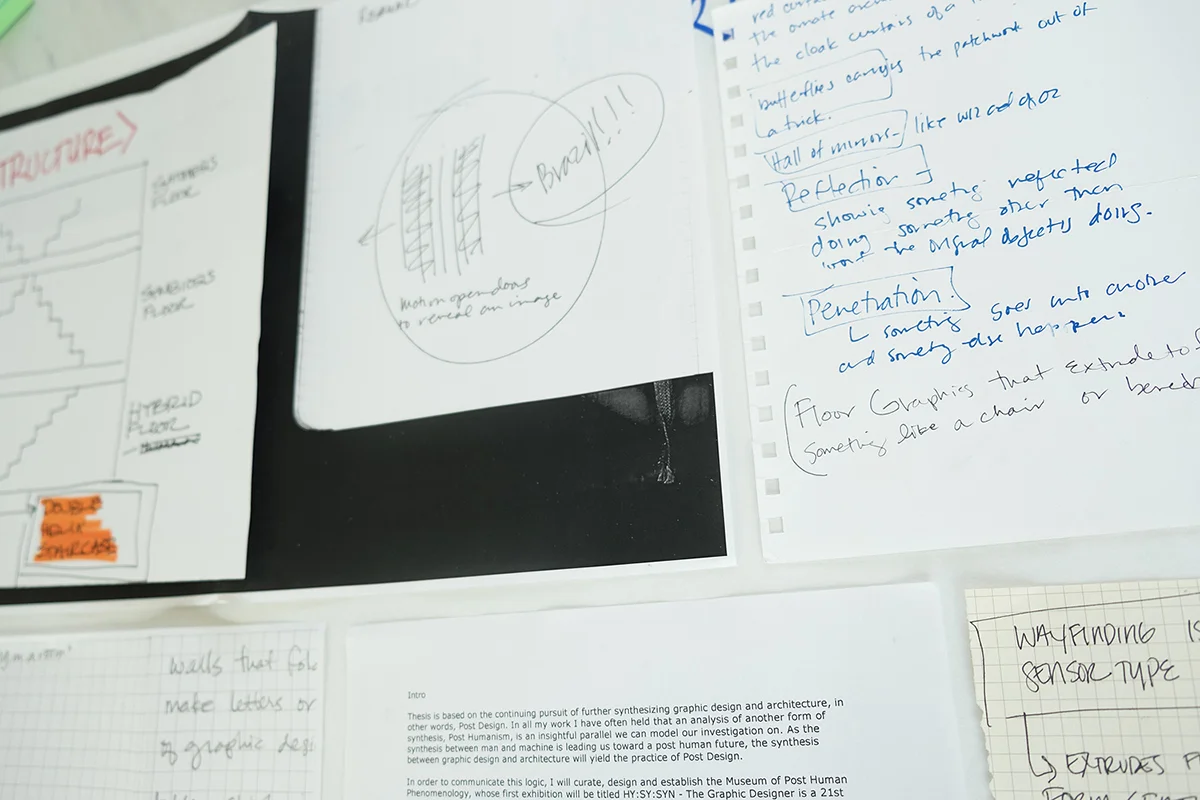 STRUCTURE>
FLOOR
SYMBIOSIS
FLOOR
HYBRID
FLOOR
DOUBLE
HELIX
STAIRCASE
Brazil!!!
Motion open doors
to reveal an image
red
the ornate
the cloak curtains of a
butterflies carrying the patchwork out of
a truck.
Hall of mirrors - like wizard of oz
Reflection
showing something reflected
doing something other than
what the original object is doing.
Penetration.
something goes into another
and something else happens
Floor Graphics that extrude to
something like a chair or
walls that
make letters or
of graphic
Intro
Thesis is based on the continuing pursuit of further synthesizing graphic design and architecture, in
other words, Post Design. In all my work I have often held that an analysis of another form of
synthesis, Post Humanism, is an insightful parallel we can model our investigation on. As the
synthesis between man and machine is leading us toward a post human future, the synthesis
between graphic design and architecture will yield the practice of Post Design.
In order to communicate this logic, I will curate, design and establish the Museum of Post Human
Phenomenology, whose first exhibition will be titled HY:SY:SYN - The Graphic Designer is a 21st
WAYFINDING IS
SENSOR TYPE
EXTRUDES